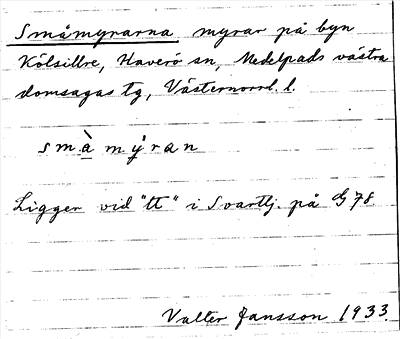 Småmyrarna myrar på byn
Kölsillre, Haverö sn, Medelpads västra
domsagas tg, Västernorrl. l.
smὰmýran
Ligger vid "tt" i Svarttj. på G 78
Valter Jansson 1933.